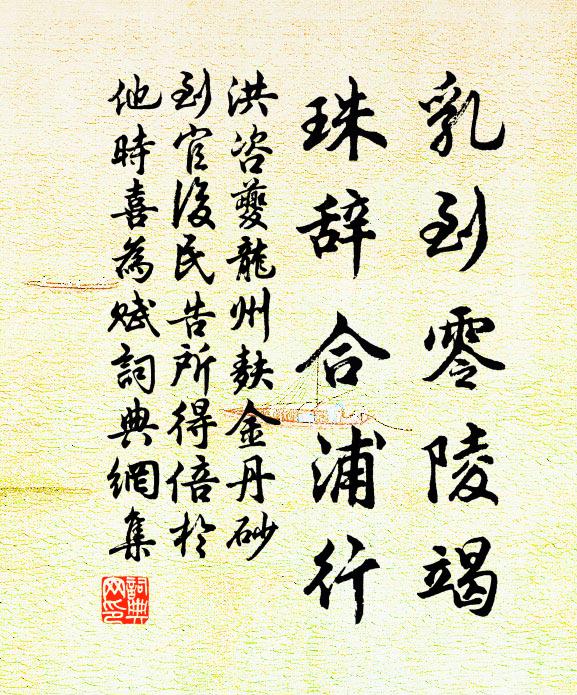 乳到零陵竭
珠辞合浦行
洪咨夔龍州麩金丹砂
到官後民告所得倍於
他時喜為賦詞典網集
詞典网印